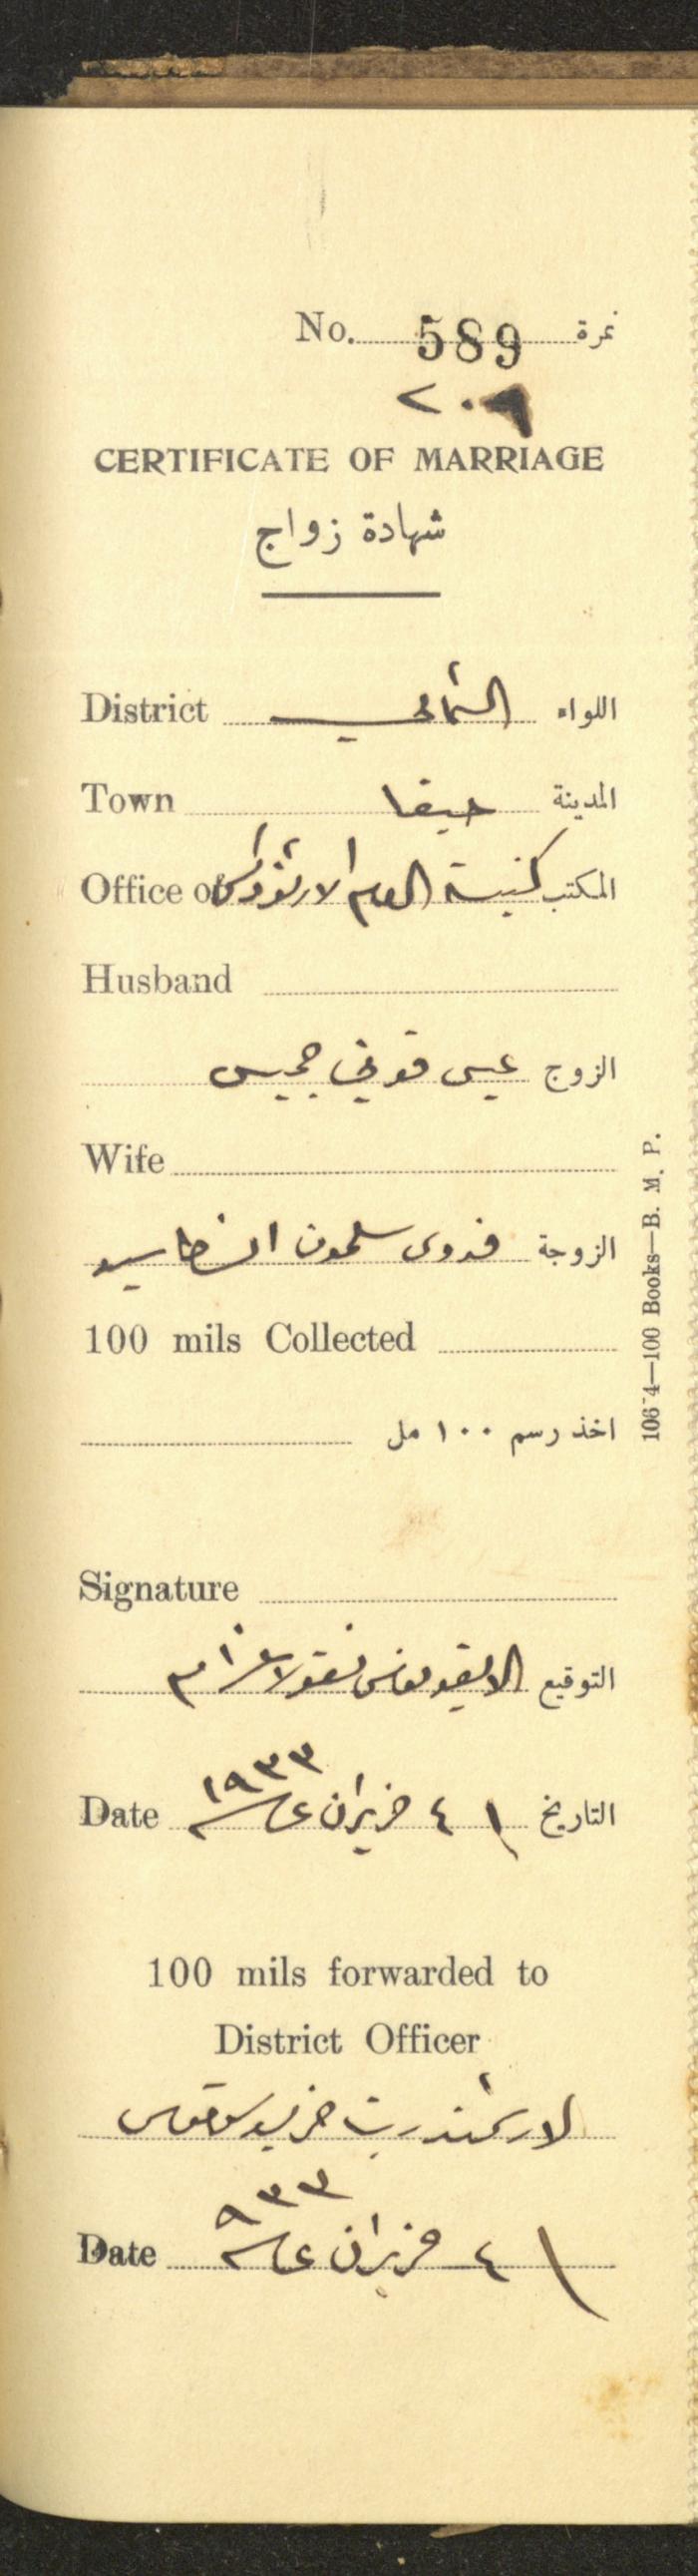 No. 589 نمرة
٢٠٩
CERTIFICATE OF MARRIAGE
شهادة زواج
District الشمالي اللواء
Town حيفا المدينة
Office of كنيسة الارثوذكس المكتب
Husband
الزوج عيسى
Wife
الزوجة فدوى سلمون
100 mils Collected
اخذ رسم ١٠٠ مل
Signature
التوقيع الايقونومس نقولا
Date ٤ حزيران ١٩٣٣ التاريخ
100 mils forwarded to
District Officer
الارشمندريت
Date ٤ حزيران ٩٣٣
106 4—100 Books—B. M. P.